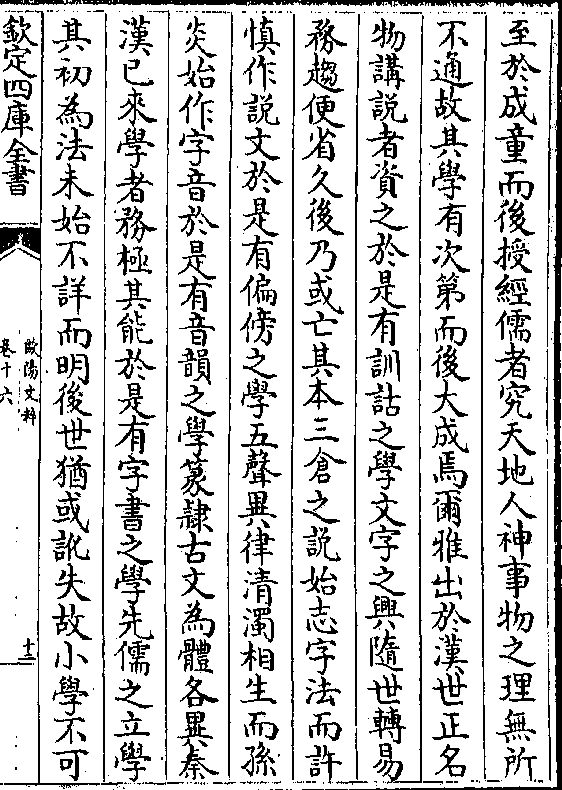 至於成童而後授經儒者究天地人神事物之理無所
不通故其學有次第而後大成焉爾雅出於漢世正名
物講說者資之於是有訓詁之學文字之興隨世轉易
務趨便省久後乃或亡其本三倉之說始志字法而許
慎作說文於是有偏傍之學五聲異律清濁相生而孫
炎始作字音於是有音韻之學篆隸古文為體各異秦
漢已來學者務極其能於是有字書之學先儒之立學
其初為法未始不詳而明後世猶或訛失故小學不可
欽定四庫全書
歐陽文粹
卷十六
十二